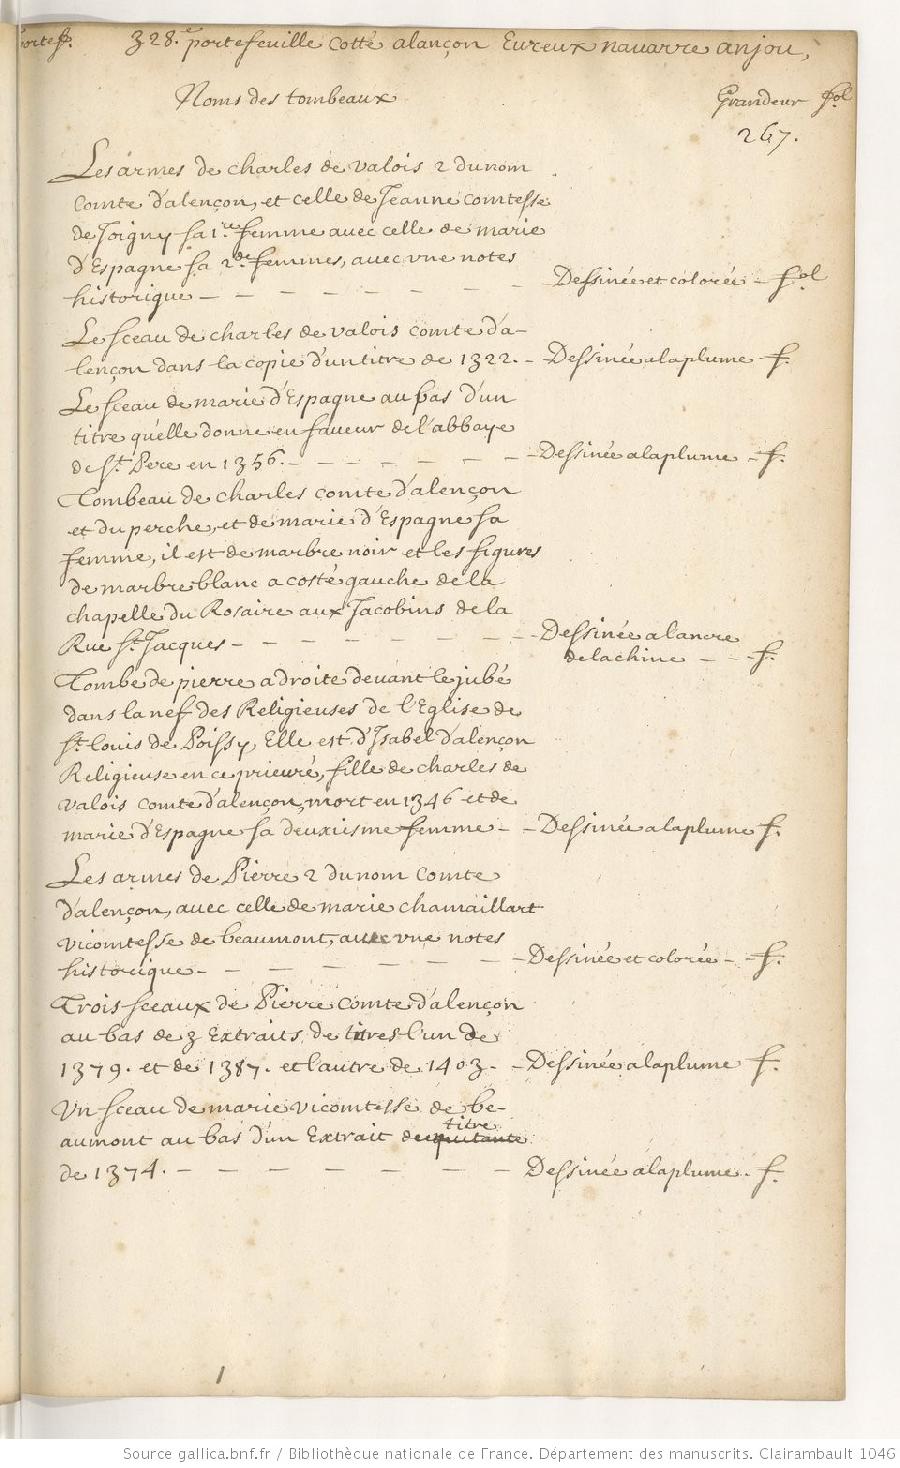 328.e portefeuille cotté alançon Eureux navarre anjou,
Noms des tombeaux
Grandeur fol
267.
Les armes de charles de valois 2 du nom
Comte d'alençon, et celle de Jeanne comtesse
de Joigny sa 1.re femme avec celle de marie
d'Espagne sa 2.de femmes, avec vne notes
historique - - - - - - - Dessinée et colorée - fol
Le sceau de charles de valois comte d'a-
lençon dans la copie d'un titre de 1322. - Dessinée a la plume - f.
Le sceau de marie d'Espagne au bas d'un
titre qu'elle donne en faveur de l'abbaye
de St. Pere en 1356. - - - - - - Dessinée a la plume - f.
Tombeau de charles comte d'alençon
et du perche, et de marie d'Espagne sa
femme, il est de marbre noir et les figures
de marbre blanc a costé gauche de la
chapelle du Rosaire aux Jacobins de la
Rue St. Jacques - - - - - - - Dessinée a lancre
de la chine - - f.
Tombe de pierre a droite devant le jubé
dans la nef des Religieuses de l'Eglise de
St. louis de Poissy, Elle est d'Isabel d'alençon
Religieuse en ce prieuré, fille de charles de
valois comte d'alençon, mort en 1346 et de
marie d'Espagne sa deuxiisme femme - - Dessinée a la plume f.
Les armes de Pierre 2 du nom Comte
d'alençon, avec celle de marie chamaillart
vicomtesse de beaumont, avec vne notes
historique - - - - - - - Dessinée et colorée - - f.
Trois sceaux de Pierre comte d'alençon
au bas de 3 Extraits de titres l'un de
1379. et de 1387. et l'autre de 1403. - Dessinée a la plume f.
Vn sceau de marie vicomtesse de be-
titre
aumont au bas d'un Extrait de quitante
de 1374. - - - - - - - Dessinée a la plume. f.
Source gallica.bnf.fr / Bibliothèque nationale de France. Département des manuscrits. Clairambault 1046